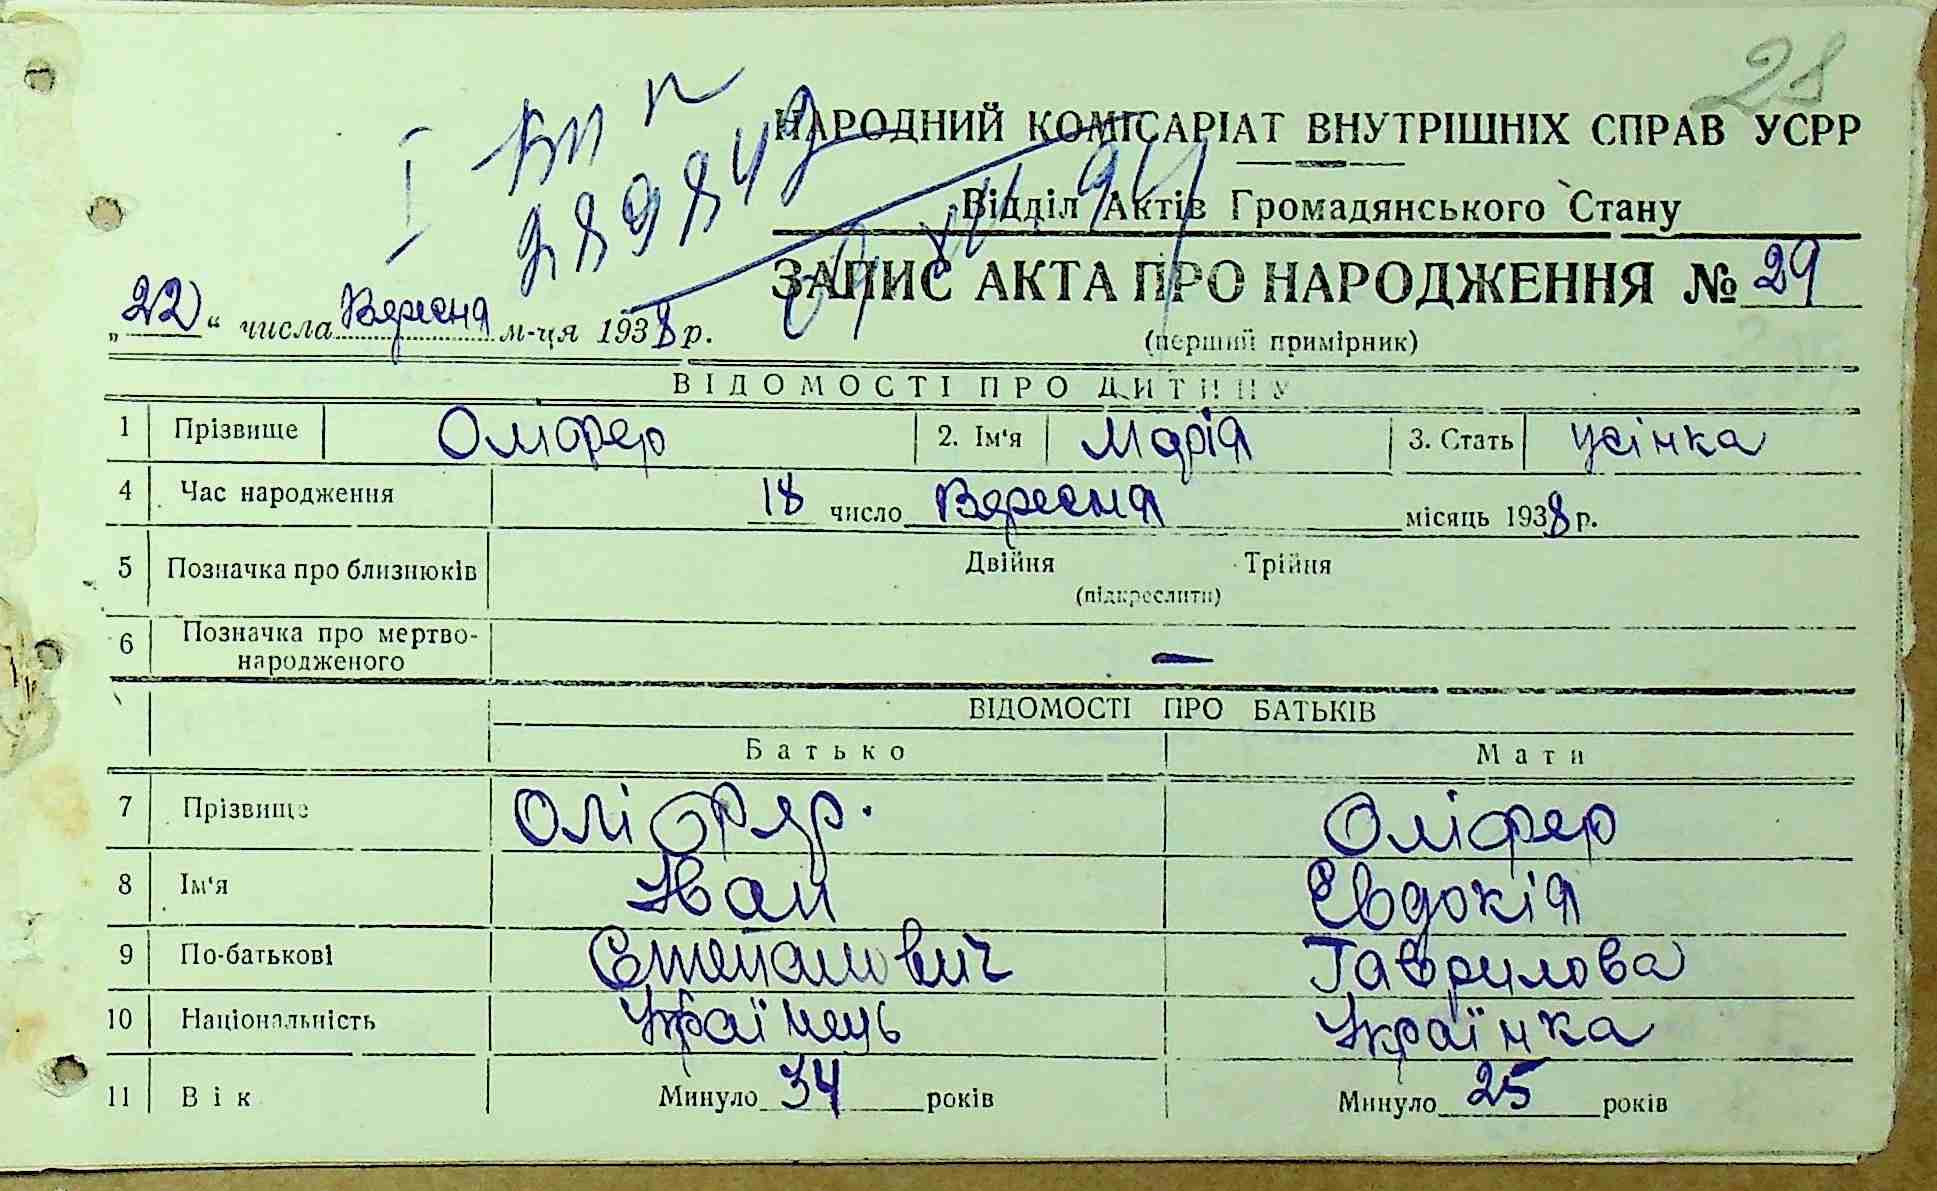 28
НАРОДНИЙ КОМІСАРІАТ ВНУТРІШНІХ СПРАВ УСРР
Відділ Актів Громадянського Стану
ЗАПИС АКТА ПРО НАРОДЖЕННЯ № 29
„22“ числа Вересня м-ця 1938 р.
(перший примірник)
ВІДОМОСТІ ПРО ДИТИНУ
1 Прізвище Оліфер 2. Ім'я Марія 3. Стать жінка
4 Час народження 18 число Вересня місяць 1938 р.
5 Позначка про близнюків Двійня Трійня
(підкреслити)
6 Позначка про мертво-
народженого —
ВІДОМОСТІ ПРО БАТЬКІВ
Батько Мати
7 Прізвище Оліфер. Оліфер
8 Ім'я Іван Евдокія
9 По-батькові Степанович Гаврилова
10 Національність Українець Українка
11 Вік Минуло 34 років Минуло 25 років